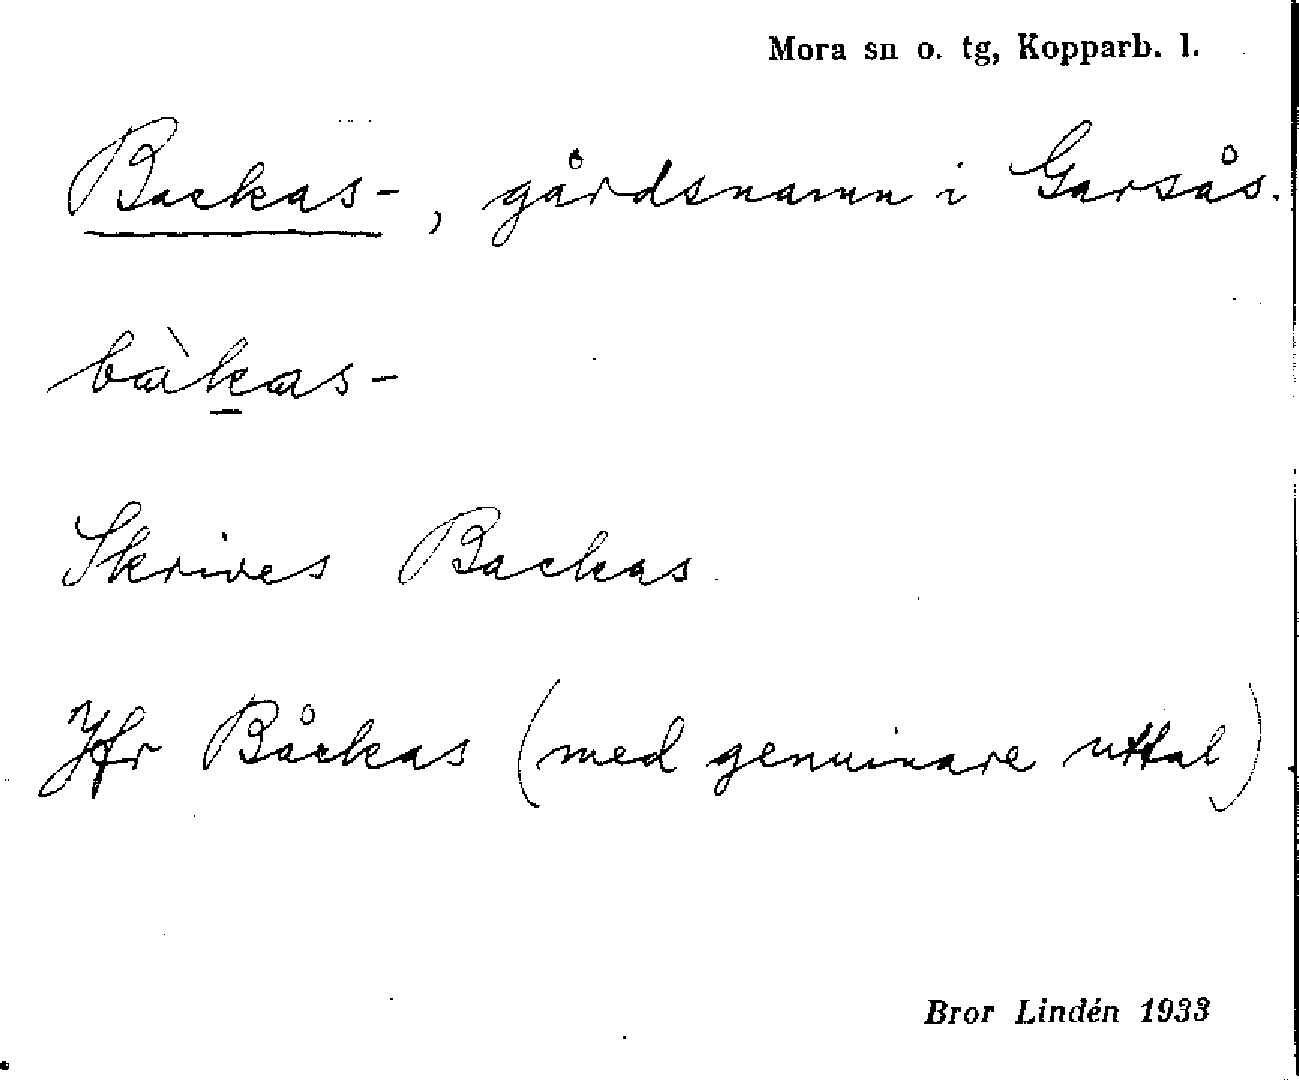 Mora sn o. tg, Kopparb. l.
Backas-, gårdsnamn i Garsås.
bàkas-
Skrives Backas
Jfr Båckas (med genuinare uttal)
Bror Lindén 1933